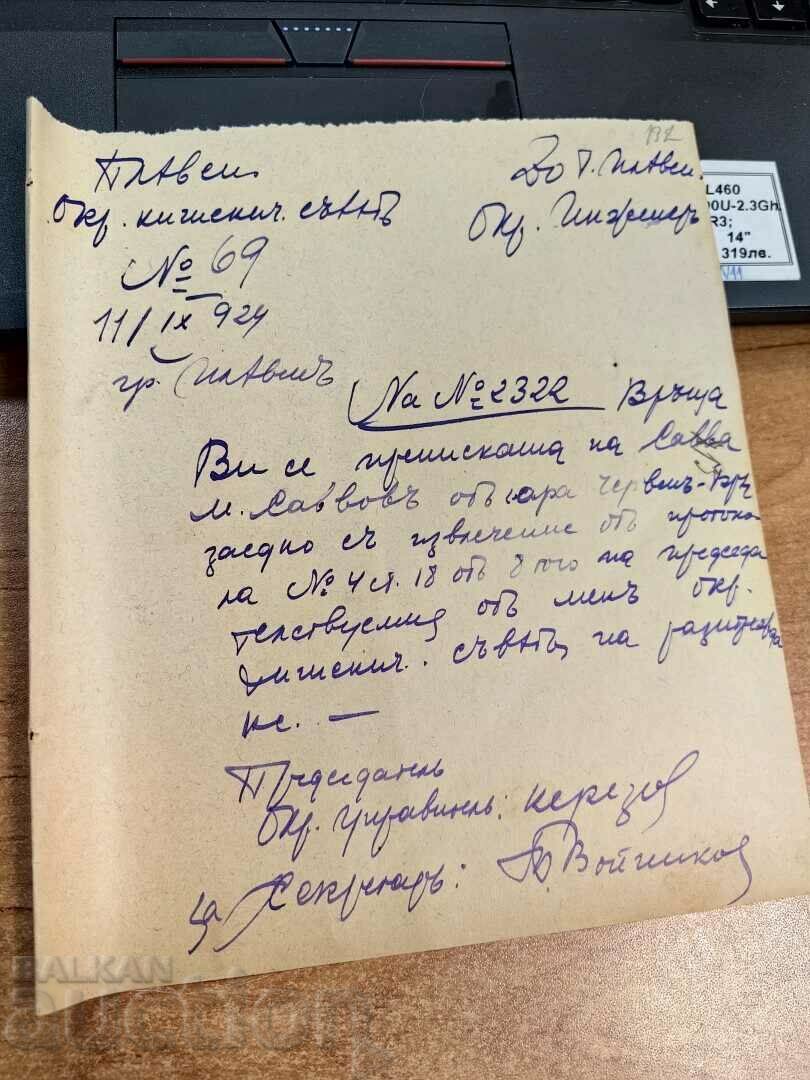 Плевен.
Окр. хигиенич. съветъ
№ 69
11/IX 924
гр. Плевенъ
До Г. Плевен.
Окр. Инженеръ
132
На № 2322 Връща
Ви се преписката на Савва
М. Саввовъ отъ гара Червенъ-Брѣг
заедно съ извлечение отъ протоко-
ла № 4 ст. 18 отъ 8 того на председа
телствуемия отъ менъ окр.
хигиенич. съветъ на разпореждане
не. —
Председатель
Окр. управитель:
За Секретарь: Войников
L460
00U-2.3Gh
R3;
14"
319лв.
BALKAN
auction